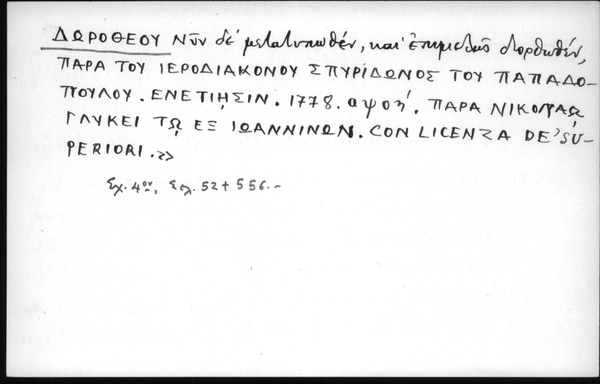 ΔΩΡΟΘΕΟΥ Νῦν δὲ μετατυπωθέν, καὶ ἐπιμελῶς διορθωθέν,
ΠΑΡΑ ΤΟΥ ΙΕΡΟΔΙΑΚΟΝΟΥ ΣΠΥΡΙΔΩΝΟΣ ΤΟΥ ΠΑΠΑΔΟ-
ΠΟΥΛΟΥ. ΕΝΕΤΙΗΣΙΝ. 1778. αψοή. ΠΑΡΑ ΝΙΚΟΛΑῼ
ΓΛΥΚΕΙ Τῼ ΕΞ ΙΩΑΝΝΙΝΩΝ. CON LICENZA DE' SU-
PERIORI.»
Σχ. 4ον, Σελ. 52 + 556.-